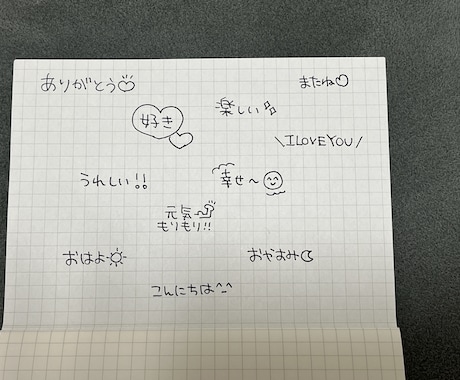 ありがとう
またね
楽しい
好き
\ILOVEYOU/
うれしい!!
幸せ〜
元気
もりもり!!
おはよ
おやすみ
こんにちは^-^